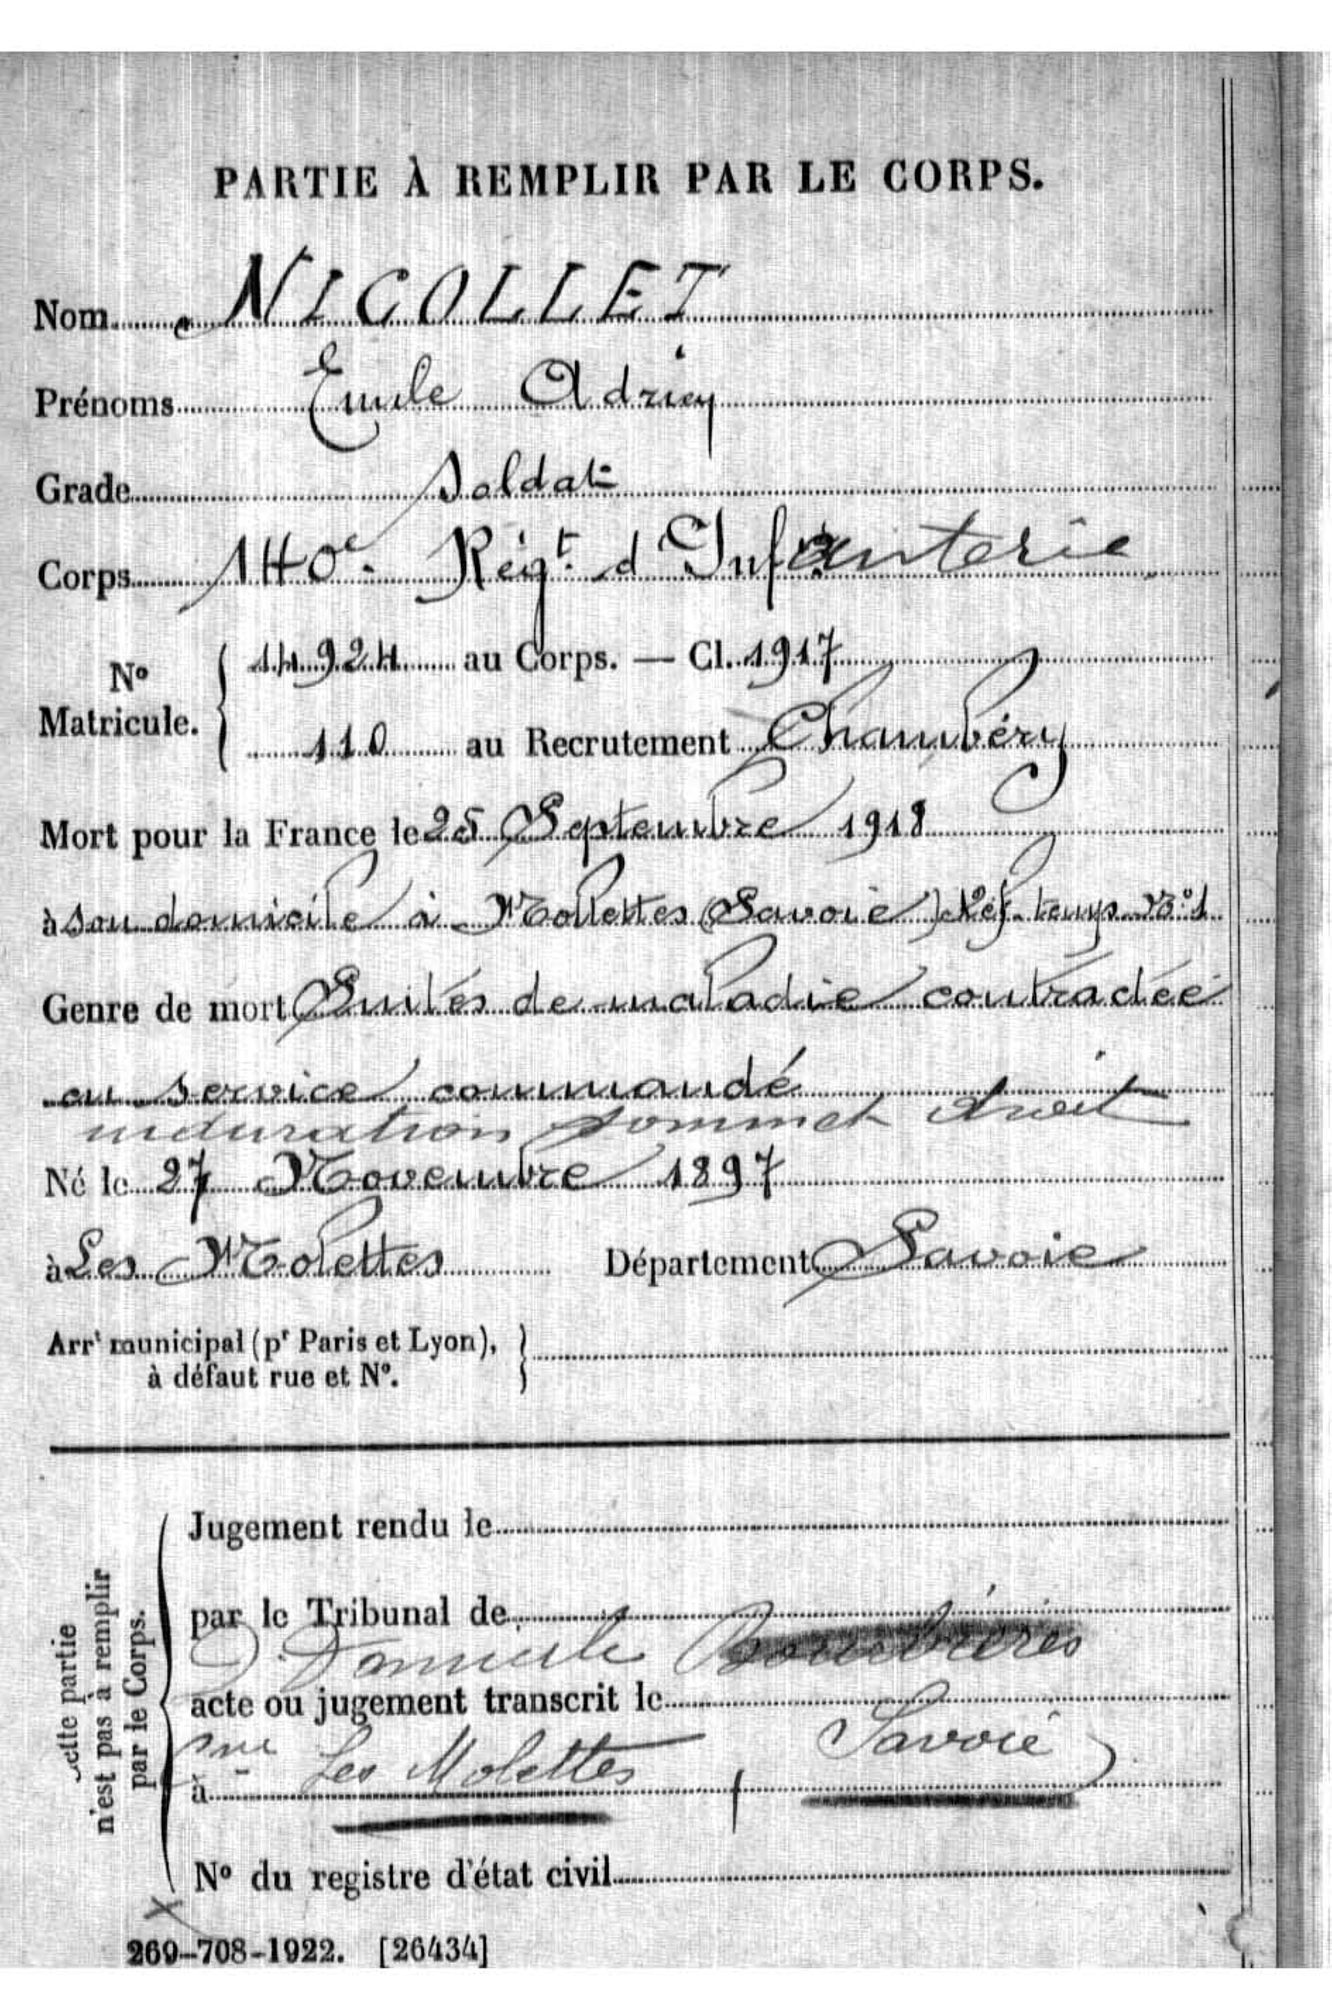 PARTIE À REMPLIR PAR LE CORPS.
Nom NICOLLET
Prénoms Emile Adrien
Grade Soldat
Corps 140e Régt d'Infanterie
No Matricule. 14924 au Corps. — Cl. 1917
110 au Recrutement Chambéry
Mort pour la France le 25 Septembre 1918
à son domicile à Mollettes (Savoie) Réf. temps No 1
Genre de mort Suites de maladie contractée
en service commandé
induration sommet droit
Né le 27 Novembre 1897
à Les Molettes Département Savoie
Arrt municipal (pr Paris et Lyon),
à défaut rue et No.
Cette partie
n'est pas à remplir
par le Corps.
Jugement rendu le
par le Tribunal de
D. Domicile
acte ou jugement transcrit le
Savoie
Les Molettes
à
No du registre d'état civil
269-708-1922. [26434]